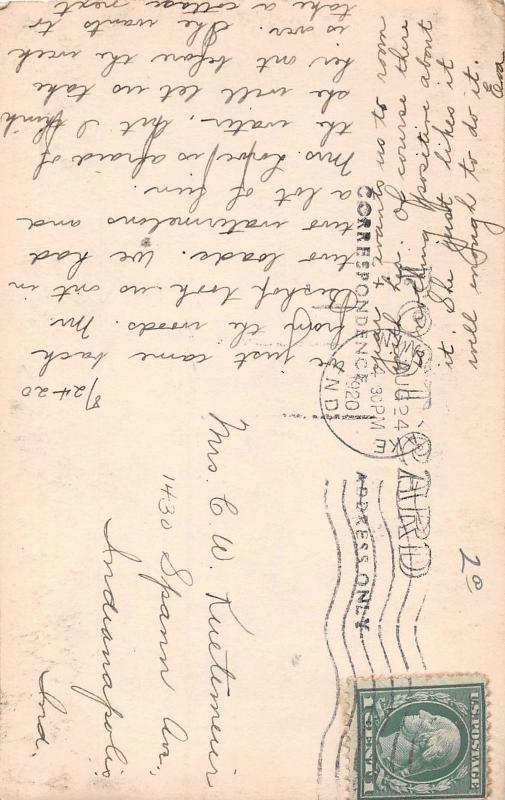 POST CARD
CORRESPONDENCE
ADDRESS ONLY
AUG 24
4 30 PM
1920
IND
U.S. POSTAGE
1 CENT 1
20
8/24-20
We just came back
from the woods. Mr.
Bishop took us out in
two loads. We had
two watermelons and
a lot of fun.
Mrs. Lowe is afraid of
the water, but I think
she will let us take
her out before the week
is over. She wants to
take a cottage next
year & wants us
Of course there
is nothing positive about
it. She just likes it
well enough to do it.
Eva
Mrs. C. W. Kuetemeier
1430 Spann Av.,
Indianapolis
Ind.